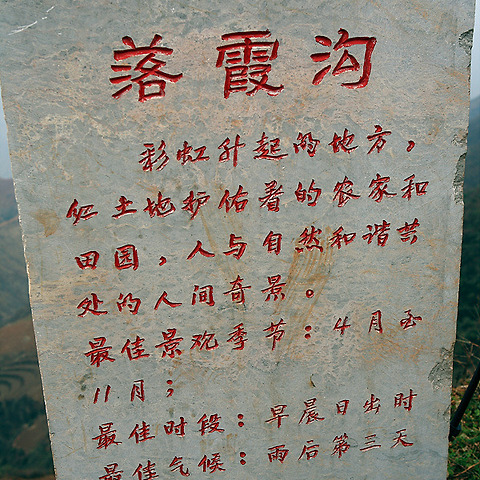 落霞沟
彩虹升起的地方，
红土地护佑着的农家和
田园，人与自然和谐共
处的人间奇景。
最佳景观季节：4月至
11月；
最佳时段：早晨日出时
最佳气候：雨后第三天